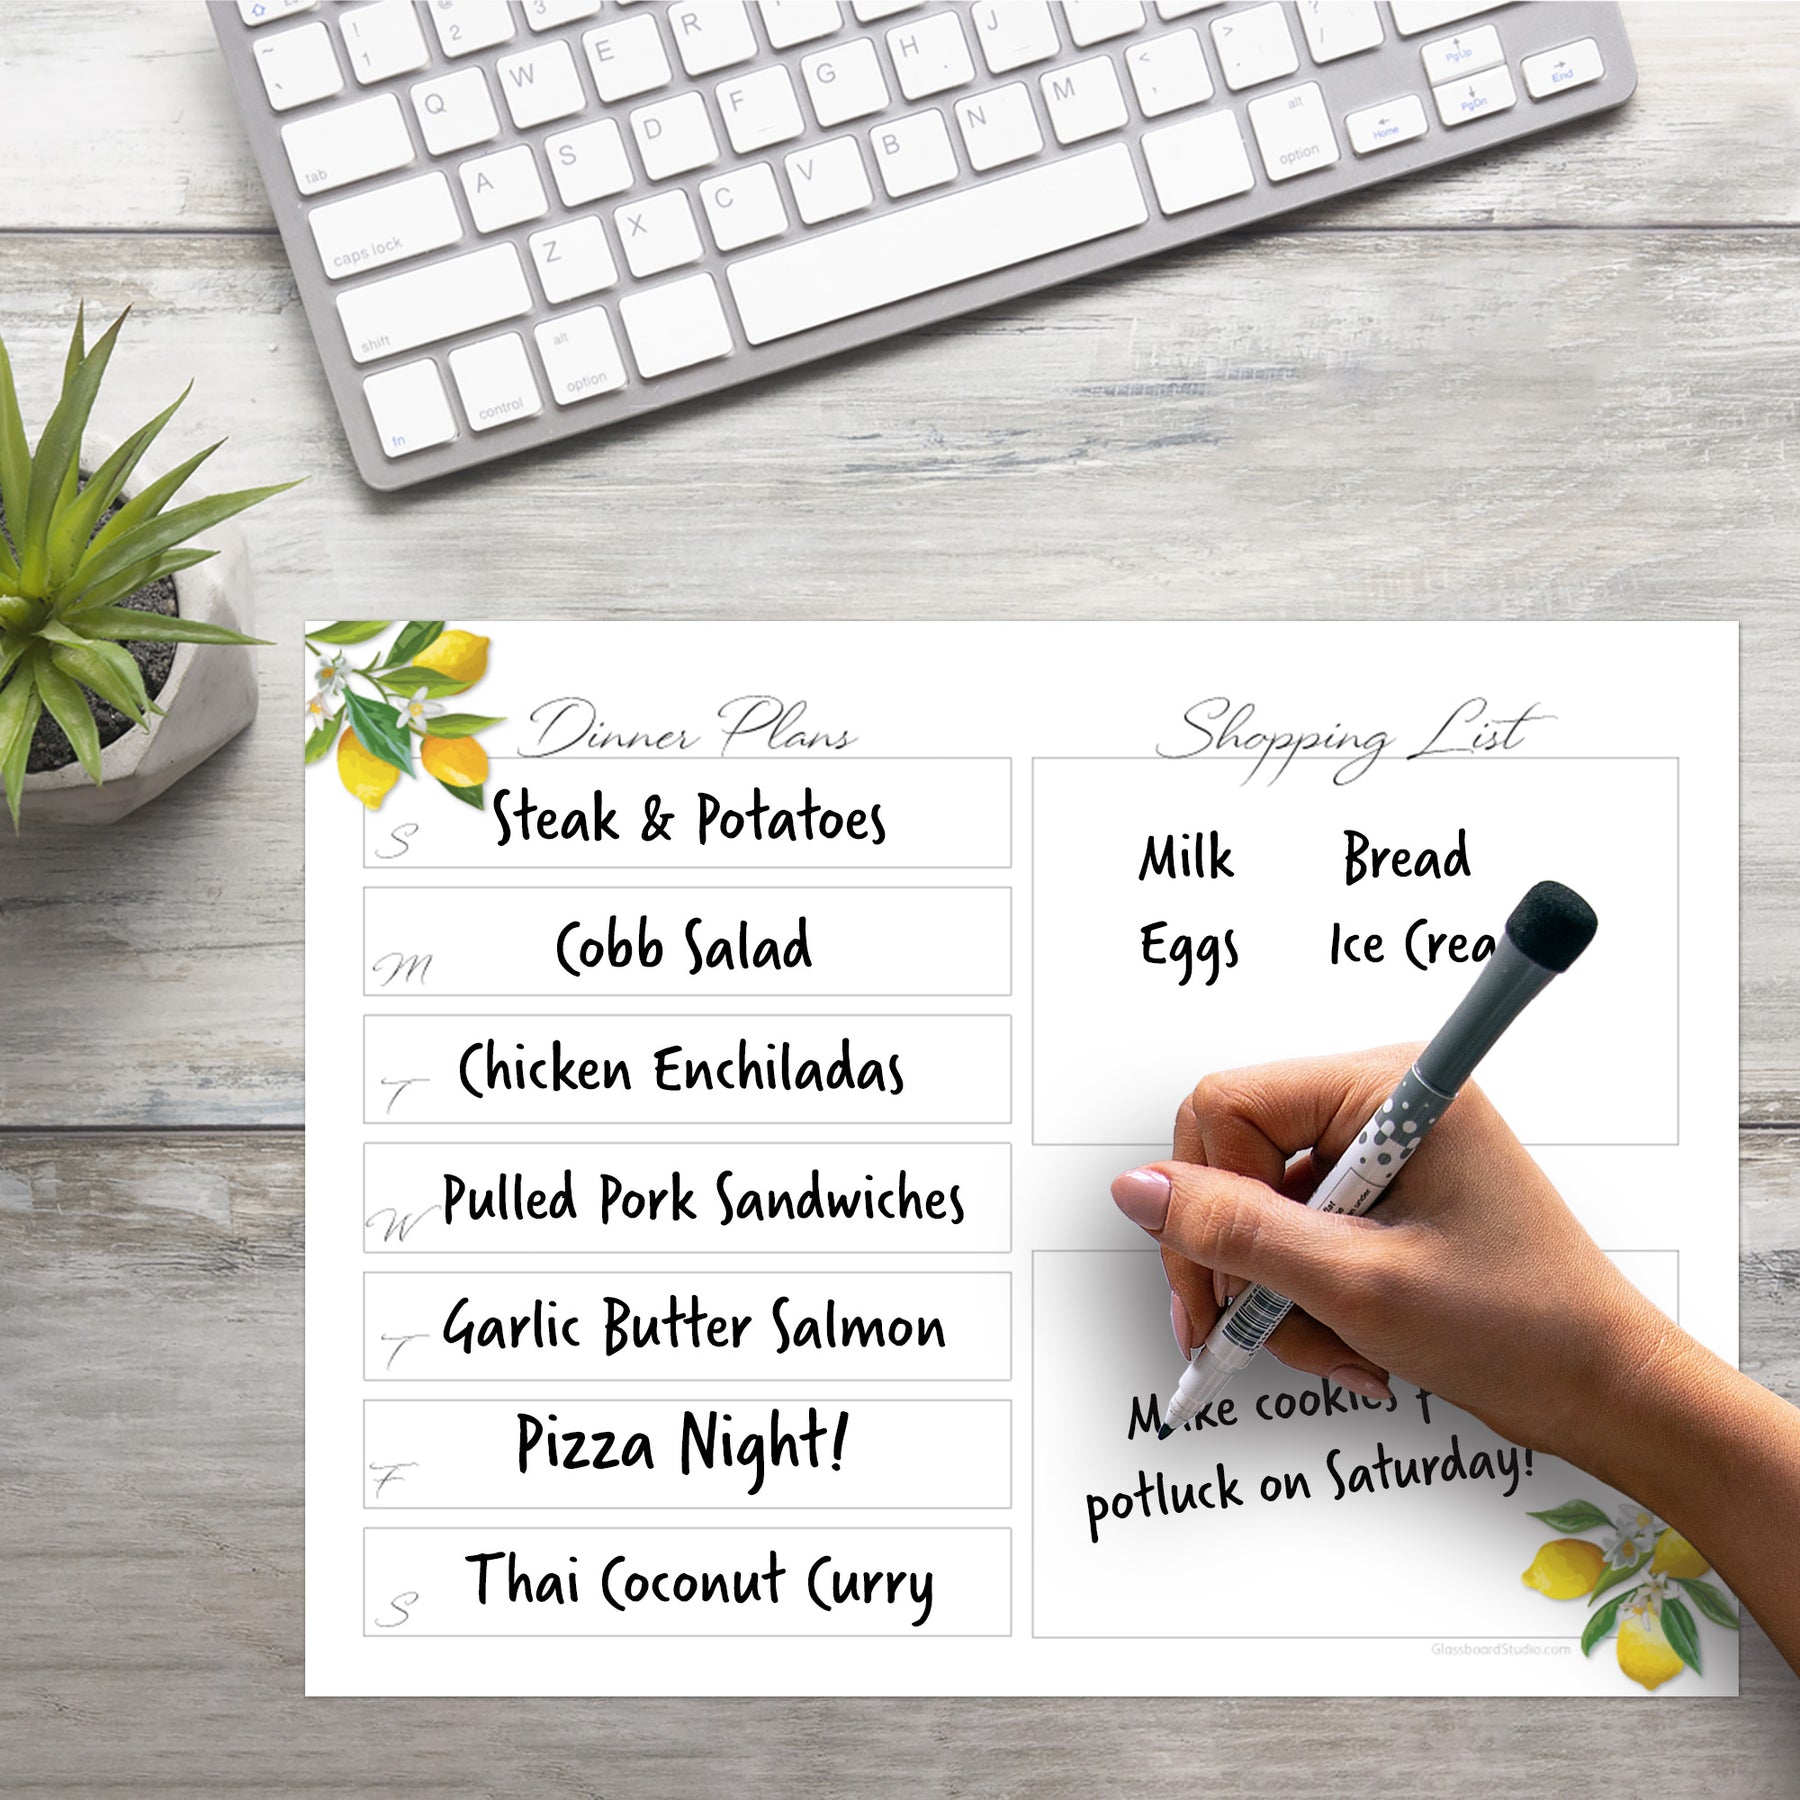 ~
`
!
1
2
3
Q W E R J
tab
A S D F G H
caps lock
Z X C V B N M < , > . ? /
shift
fn control alt option
alt option
Home PgUp PgDn End
Dinner Plans
S Steak & Potatoes
M Cobb Salad
T Chicken Enchiladas
W Pulled Pork Sandwiches
T Garlic Butter Salmon
F Pizza Night!
S Thai Coconut Curry
Shopping List
Milk Bread
Eggs Ice Crea
Make cookies
potluck on Saturday!
GlassboardStudio.com